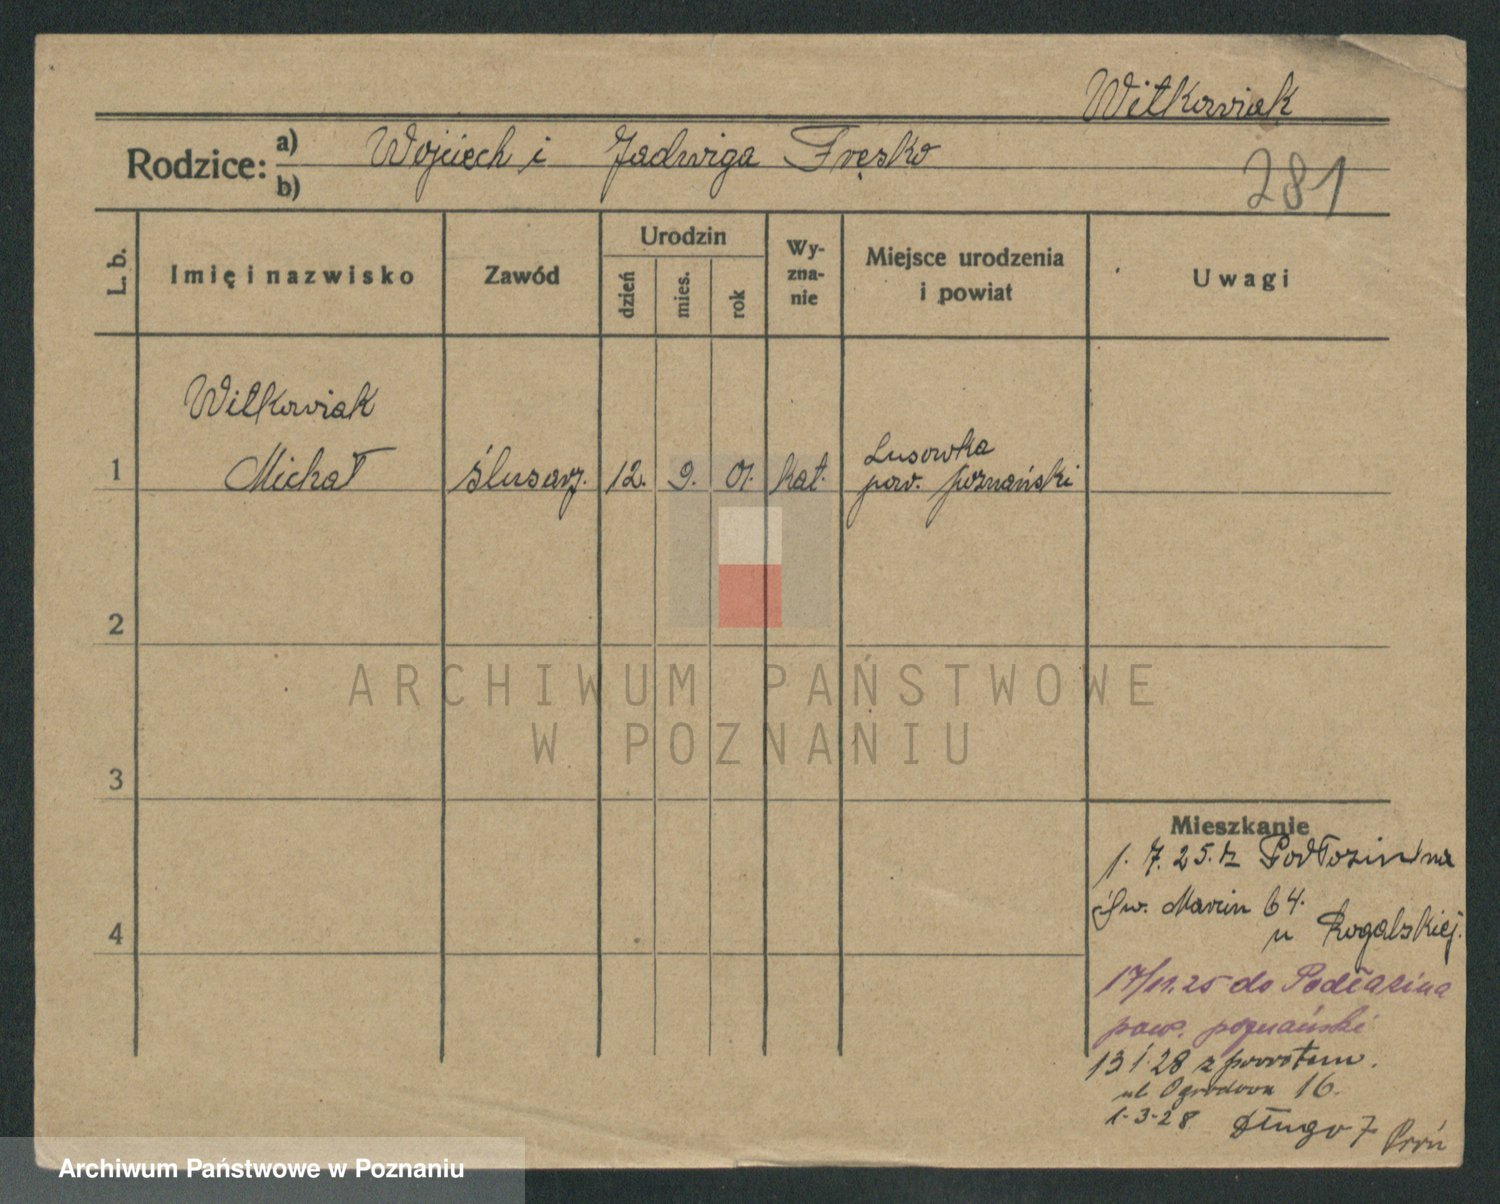 Witkowiak
Rodzice: a) Wojciech i Jadwiga Fręsko
b)
281
L. b.
Imię i nazwisko
Zawód
Urodzin
dzień
mies.
rok
Wy-
zna-
nie
Miejsce urodzenia
i powiat
Uwagi
Witkowiak
1 Michał ślusarz. 12. 9. 01. kat. Lusowka
pow. poznański
2
3
4
Mieszkanie
1. 7. 25. z Podłozin na
Św. Marcin 64.
u Rogalskiej.
17/11.25 do Podłazina
pow. poznański
13 1 28 z powrotem.
ul Ogrodowa 16.
1-3-28 Długa 7
ARCHIWUM PAŃSTWOWE
W POZNANIU
Archiwum Państwowe w Poznaniu